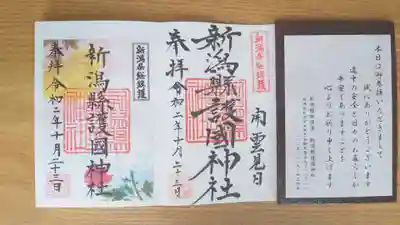 本日は御参拝いただきまして
誠にありがとうございます
道中の安全と日々のお暮らしが
平安でありますことを
心よりお祈り申し上げます
新潟縣総鎮護
開雲見日
新潟縣護國神社
奉拝
令和二年十月二十三日
新潟縣総鎮護
新潟縣護國神社
奉拝
令和二年十月二十三日